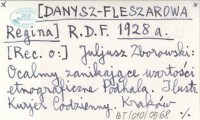 [DANYSZ-FLESZAROWA
Regina] R.D.F. 1928 a.
[Rec. o:] Juljusz Zborowski:
Ocalmy zanikające wartości
etnograficzne Podhala. Ilustr.
Kurjer Codzienny. Kraków
BT/010/0968 %.